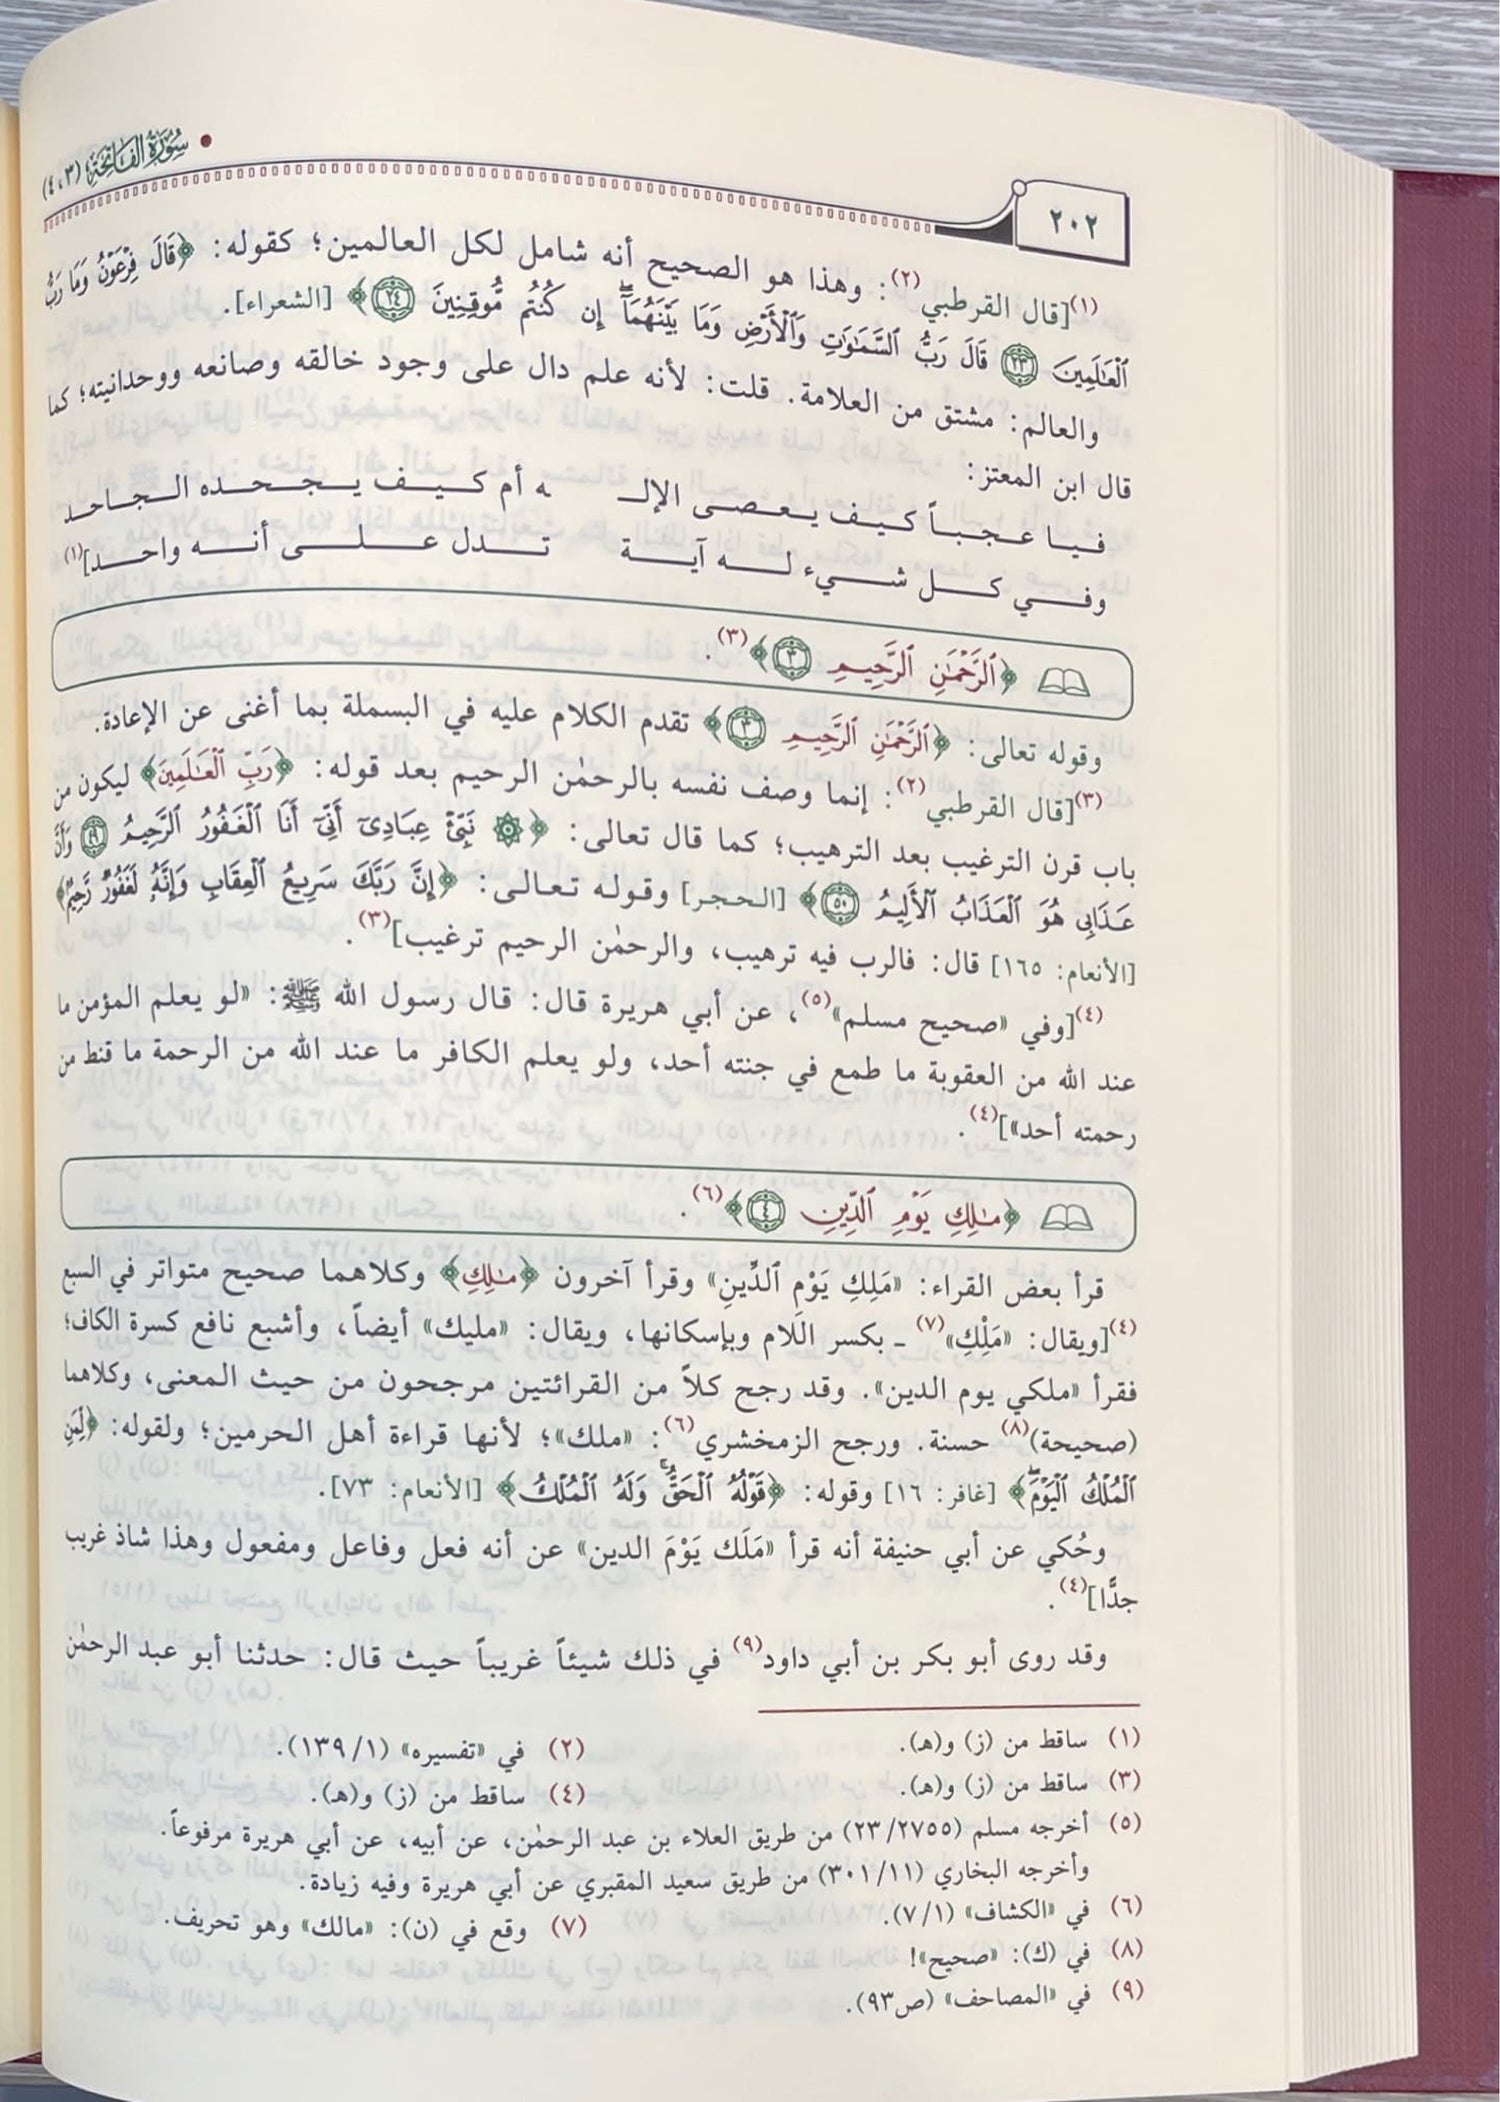 سُورَةُ الفَاتِحَةِ (٣، ٤)
٢٠٢
(١)[قال القرطبي(٢): وهذا هو الصحيح أنه شامل لكل العالمين؛ كقوله: ﴿قَالَ فِرْعَوْنُ وَمَا رَبُّ
ٱلْعَـٰلَمِينَ ٢٣ قَالَ رَبُّ ٱلسَّمَـٰوَٰتِ وَٱلْأَرْضِ وَمَا بَيْنَهُمَآ ۖ إِن كُنتُم مُّوقِنِينَ ٢٤﴾ [الشعراء].
والعالم: مشتق من العلامة. قلت: لأنه علم دال على وجود خالقه وصانعه ووحدانيته؛ كما
قال ابن المعتز:
فيا عجباً كيف يعصى الإلـ ـه أم كيف يجحده الجاحد
وفي كل شيء له آية تدل على أنه واحد](١)
﴿ٱلرَّحْمَـٰنِ ٱلرَّحِيمِ ٣﴾(٣).
وقوله تعالى: ﴿ٱلرَّحْمَـٰنِ ٱلرَّحِيمِ ٣﴾ تقدم الكلام عليه في البسملة بما أغنى عن الإعادة.
(٣)[قال القرطبي(٢): إنما وصف نفسه بالرحمٰن الرحيم بعد قوله: ﴿رَبِّ ٱلْعَـٰلَمِينَ﴾ ليكون من
باب قرن الترغيب بعد الترهيب؛ كما قال تعالى: ﴿۞ نَبِّئْ عِبَادِىٓ أَنِّىٓ أَنَا ٱلْغَفُورُ ٱلرَّحِيمُ ٤٩ وَأَنَّ
عَذَابِى هُوَ ٱلْعَذَابُ ٱلْأَلِيمُ ٥٠﴾ [الحجر] وقوله تعالى: ﴿إِنَّ رَبَّكَ سَرِيعُ ٱلْعِقَابِ وَإِنَّهُۥ لَغَفُورٌ رَّحِيمٌ﴾
[الأنعام: ١٦٥] قال: فالرب فيه ترهيب، والرحمٰن الرحيم ترغيب](٣).
(٤)[وفي «صحيح مسلم»(٥)، عن أبي هريرة قال: قال رسول الله ﷺ: «لو يعلم المؤمن ما
عند الله من العقوبة ما طمع في جنته أحد، ولو يعلم الكافر ما عند الله من الرحمة ما قنط من
رحمته أحد»](٤).
﴿مَـٰلِكِ يَوْمِ ٱلدِّينِ ٤﴾(٦).
قرأ بعض القراء: «مَلِكِ يَوْمِ ٱلدِّينِ» وقرأ آخرون ﴿مَـٰلِكِ﴾ وكلاهما صحيح متواتر في السبع
(٤)[ويقال: «مَلْكِ»(٧) ـ بكسر اللام وبإسكانها، ويقال: «مليك» أيضاً، وأشبع نافع كسرة الكاف؛
فقرأ «ملكي يوم الدين». وقد رجح كلاً من القرائتين مرجحون من حيث المعنى، وكلاهما
(صحيحة)(٨) حسنة. ورجح الزمخشري(٦): «ملك»؛ لأنها قراءة أهل الحرمين؛ ولقوله: ﴿لِّمَنِ
ٱلْمُلْكُ ٱلْيَوْمَ ۖ﴾ [غافر: ١٦] وقوله: ﴿قَوْلُهُ ٱلْحَقُّ ۚ وَلَهُ ٱلْمُلْكُ﴾ [الأنعام: ٧٣].
وحُكي عن أبي حنيفة أنه قرأ «مَلَك يَوْمَ الدين» عن أنه فعل وفاعل ومفعول وهذا شاذ غريب
جدًّا](٤).
وقد روى أبو بكر بن أبي داود(٩) في ذلك شيئاً غريباً حيث قال: حدثنا أبو عبد الرحمٰن
(١) ساقط من (ز) و(هـ). (٢) في «تفسيره» (١/١٣٩).
(٣) ساقط من (ز) و(هـ). (٤) ساقط من (ز) و(هـ).
(٥) أخرجه مسلم (٢٣/٢٧٥٥) من طريق العلاء بن عبد الرحمٰن، عن أبيه، عن أبي هريرة مرفوعاً.
وأخرجه البخاري (٣٠١/١١) من طريق سعيد المقبري عن أبي هريرة وفيه زيادة.
(٦) في «الكشاف» (٧/١). (٧) وقع في (ن): «مالك» وهو تحريف.
(٨) في (ك): «صحيح»!
(٩) في «المصاحف» (ص٩٣).